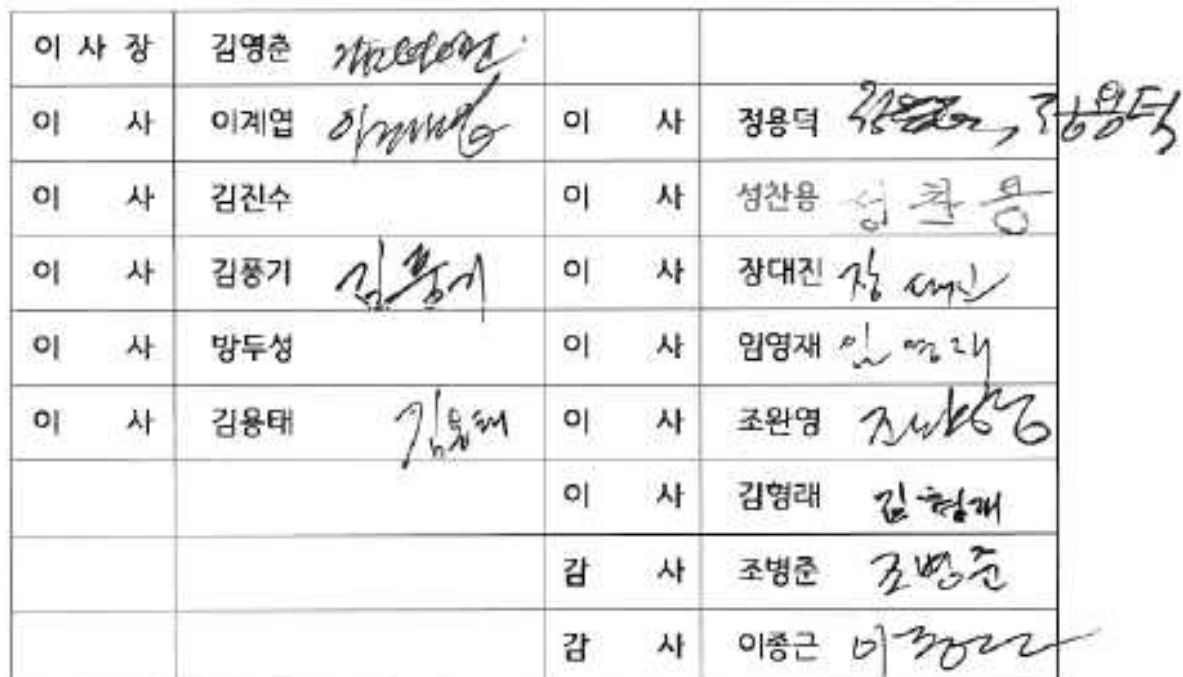 이 사 장 김영춘
이 사 이계엽 이 사 정용덕 정용덕
이 사 김진수 이 사 성찬용 성찬용
이 사 김풍기 김풍기 이 사 장대진 장대진
이 사 방두성 이 사 임영재 임영재
이 사 김용태 김용태 이 사 조완영
이 사 김형래 김형래
감 사 조병준 조병준
감 사 이종근 이종근